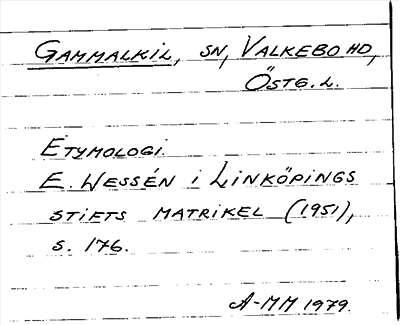 GAMMALKIL, SN, VALKEBO HD,
ÖSTG. L.
ETYMOLOGI.
E. WESSÉN i LINKÖPINGS
STIETS MATRIKEL (1951),
S. 176.
A-MM 1979.